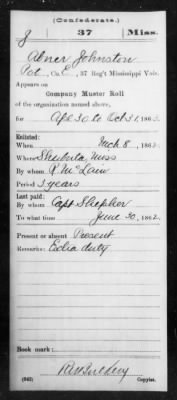 (Confederate.)
J 37 Miss.
Abner Johnston
Pvt., Co. E, 37 Reg't Mississippi Vols.
Appears on
Company Muster Roll
of the organization named above,
for Apl 30 to Oct 31, 1862.
Enlisted:
When Mch 8, 1862.
Where Shubuta, Miss
By whom R McLain
Period 3 years
Last paid:
By whom Capt Shepher
To what time June 30, 1862.
Present or absent Present
Remarks: duty
Book mark:
(642) Copyist.